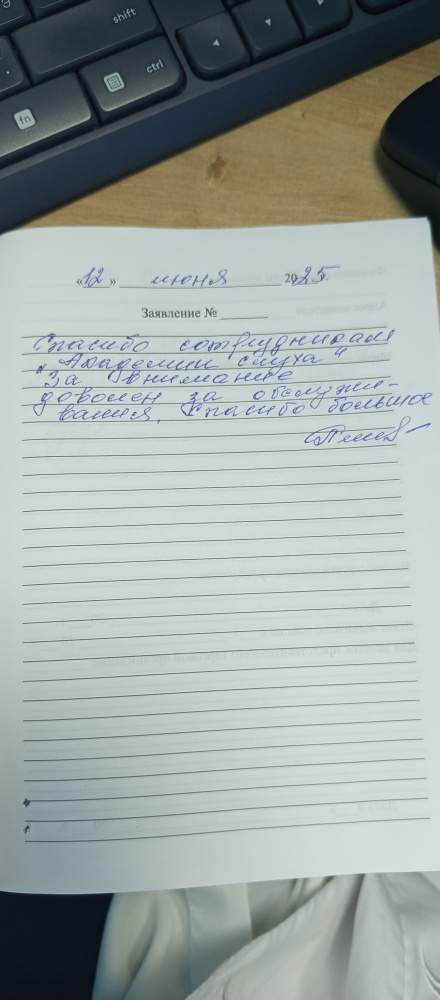 shift
ctrl
fn
«12» июня 2025г.
Заявление №
Спасибо сотрудникам
"Академии слуха"
За внимание
доволен за обслужи-
вания, Спасибо большое